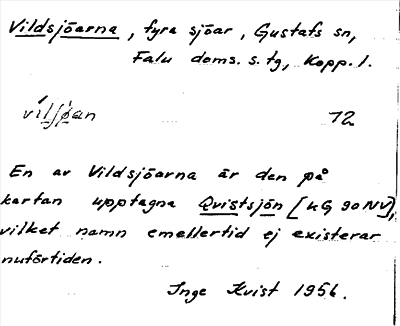 Vildsjöarna, fyra sjöar, Gustafs sn,
Falu doms. s. tg, Kopp. l.
12
En av Vildsjöarna är den på
kartan upptagna Qvistsjön [KG 90 NV],
vilket namn emellertid ej existerar
nuförtiden.
Inge Kvist 1956.